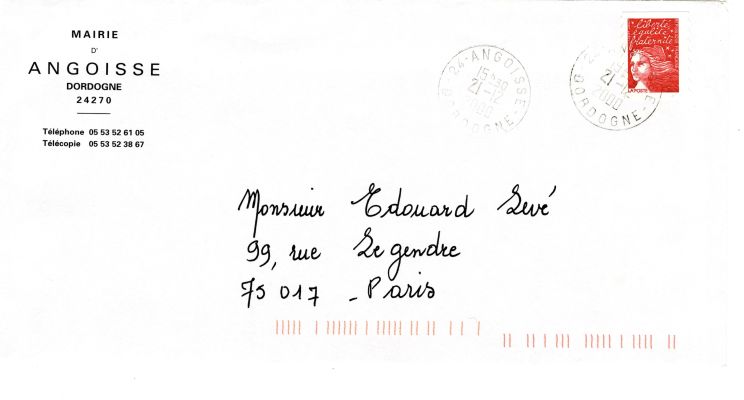 MAIRIE
D'
ANGOISSE
DORDOGNE
24270
Téléphone 05 53 52 61 05
Télécopie 05 53 52 38 67
24-ANGOISSE
21-12
2000
DORDOGNE
liberté
égalité
fraternité
LA POSTE
21-12
2000
DORDOGNE
Monsieur Edouard Levé
99, rue Legendre
75017 - Paris